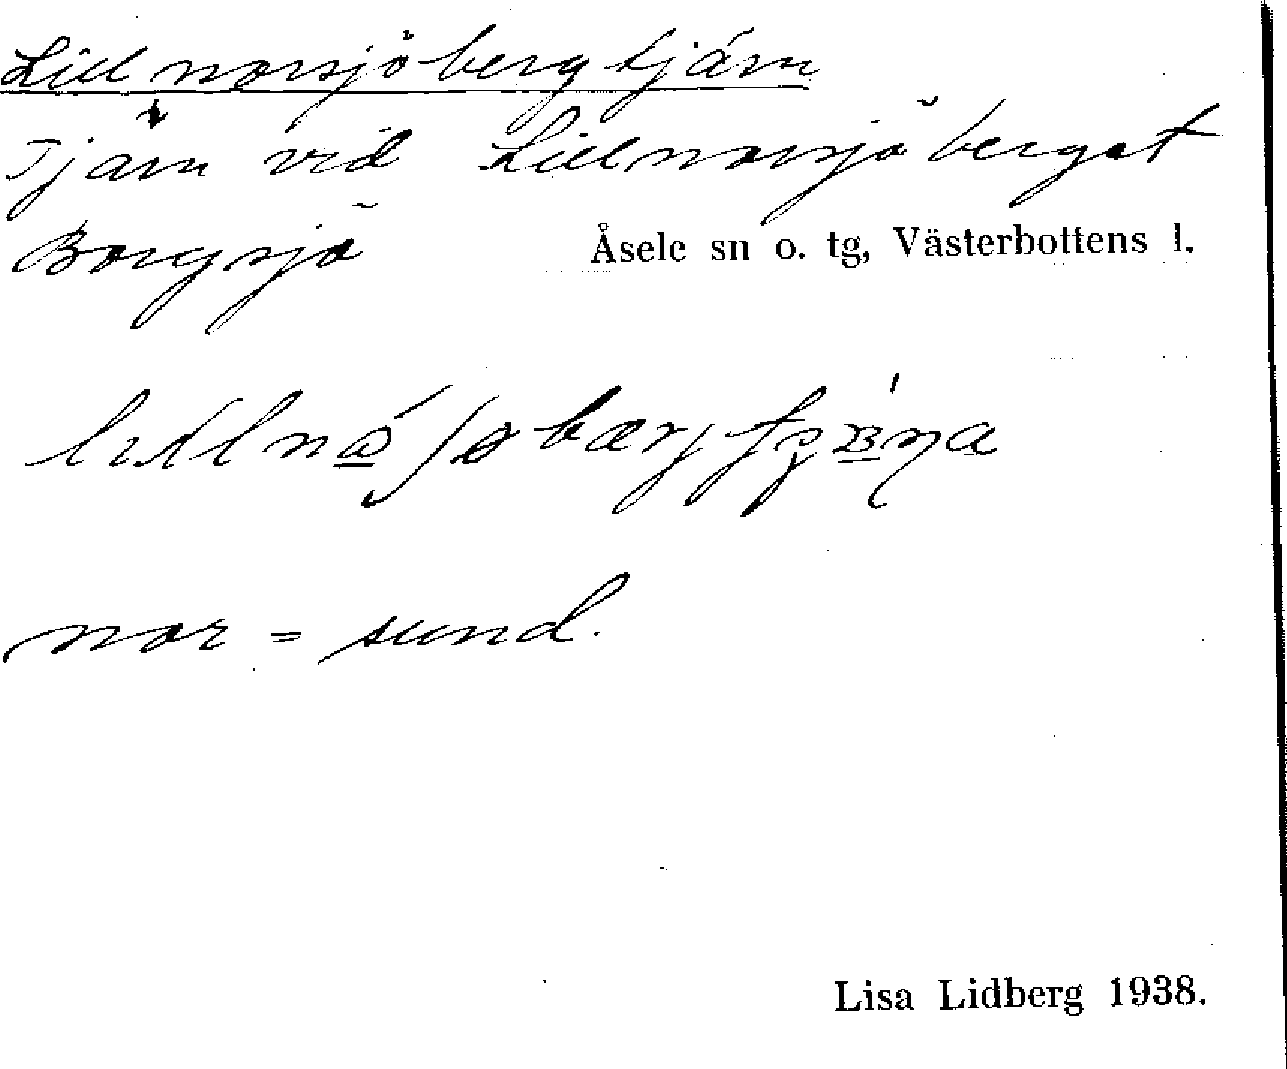 Lillnorsjöbergtjärn
Tjärn vid Lillnorsjöberget
Borgsjö Åsele sn o. tg, Västerbottens l.
nor = sund.
Lisa Lidberg 1938.